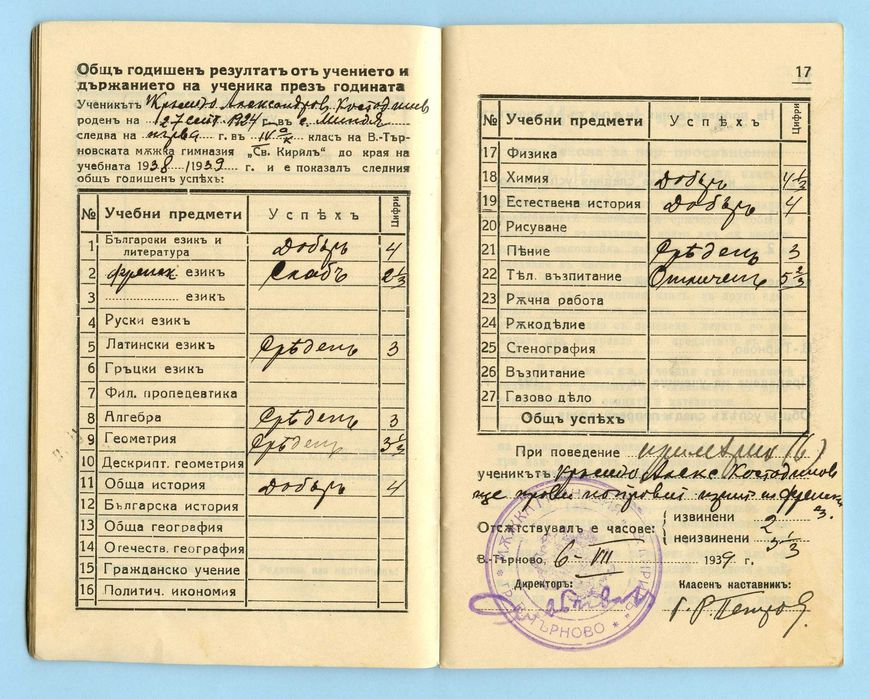 Общъ годишенъ резултатъ отъ учението и
държанието на ученика презъ годината
Ученикътъ Александров Костадинов
роденъ на 27 септ. 1924 г. въ с. Миндя
следва на първа г. въ IV а класъ на В.-Тър-
новската мѫжка гимназия „Св. Кирилъ“ до края на
учебната 1938/1939 г. и е показалъ следния
общъ годишенъ успѣхъ:
№ Учебни предмети Успѣхъ Цифри
1 Български езикъ и
литература Добъръ 4
2 френск езикъ Слабъ 2 1/3
3 езикъ
4 Руски езикъ
5 Латински езикъ Срѣденъ 3
6 Гръцки езикъ
7 Фил. пропедевтика
8 Алгебра Срѣденъ 3
9 Геометрия Срѣденъ 3 1/3
10 Дескрипт. геометрия
11 Обща история Добъръ 4
12 Българска история
13 Обща география
14 Отечеств. география
15 Гражданско учение
16 Политич. икономия
17
№ Учебни предмети Успѣхъ Цифри
17 Физика
18 Химия Добъръ 4 1/2
19 Естествена история Добъръ 4
20 Рисуване
21 Пѣние Срѣденъ 3
22 Тѣл. възпитание Отличенъ 5 2/3
23 Рѫчна работа
24 Рѫкодѣлие
25 Стенография
26 Възпитание
27 Газово дѣло
Общъ успѣхъ
При поведение примѣрно (6)
ученикътъ Алекс Костадинов
ще
Отсѫтствувалъ е часове: извинени 2
неизвинени 3 1/3
В.-Търново, 6 - VII 1939 г.
Директоръ: Класенъ наставникъ:
Г. Р. Петров
ТЪРНОВО